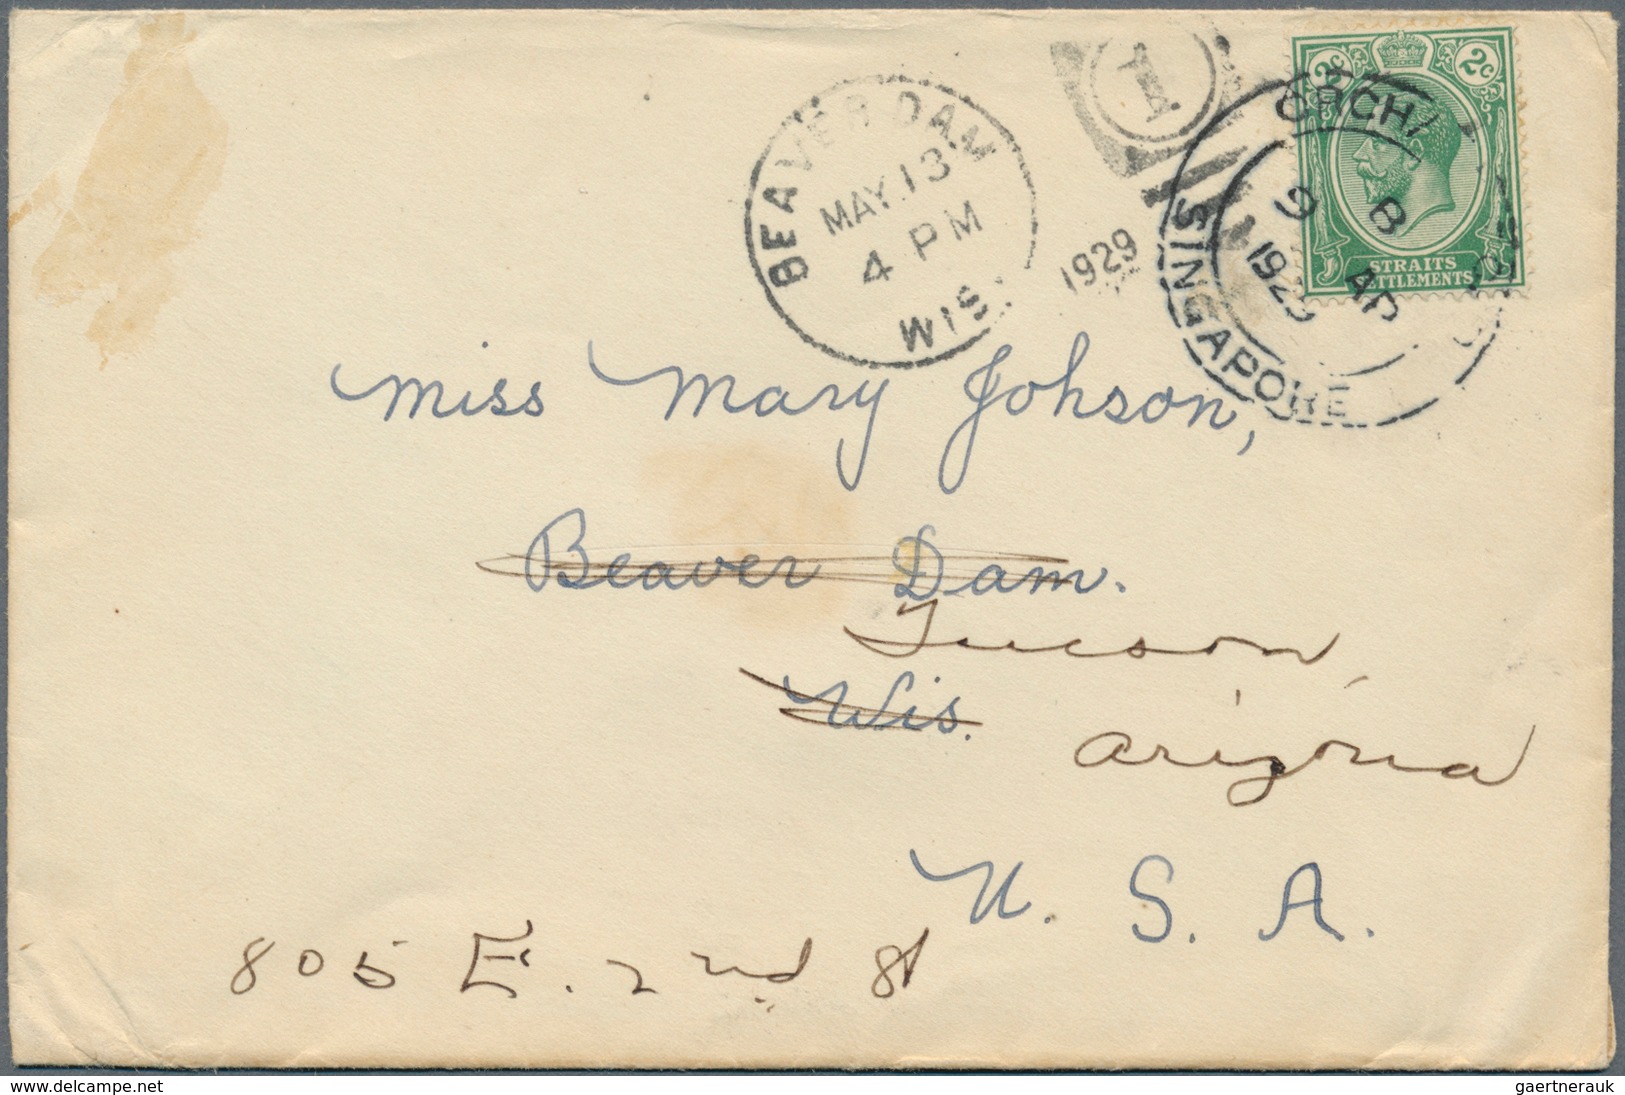 BEAVER DAM
MAY 13
4 PM
WIS.
1929
1
2c 2c
STRAITS
SETTLEMENTS
ORCHA
9 B
AP
192
SINGAPORE
Miss Mary Johson,
Beaver Dam.
Tucson,
Wis.
Arizona
U. S. A.
805 E. 2nd St
www.delcampe.net
gaertnerauk